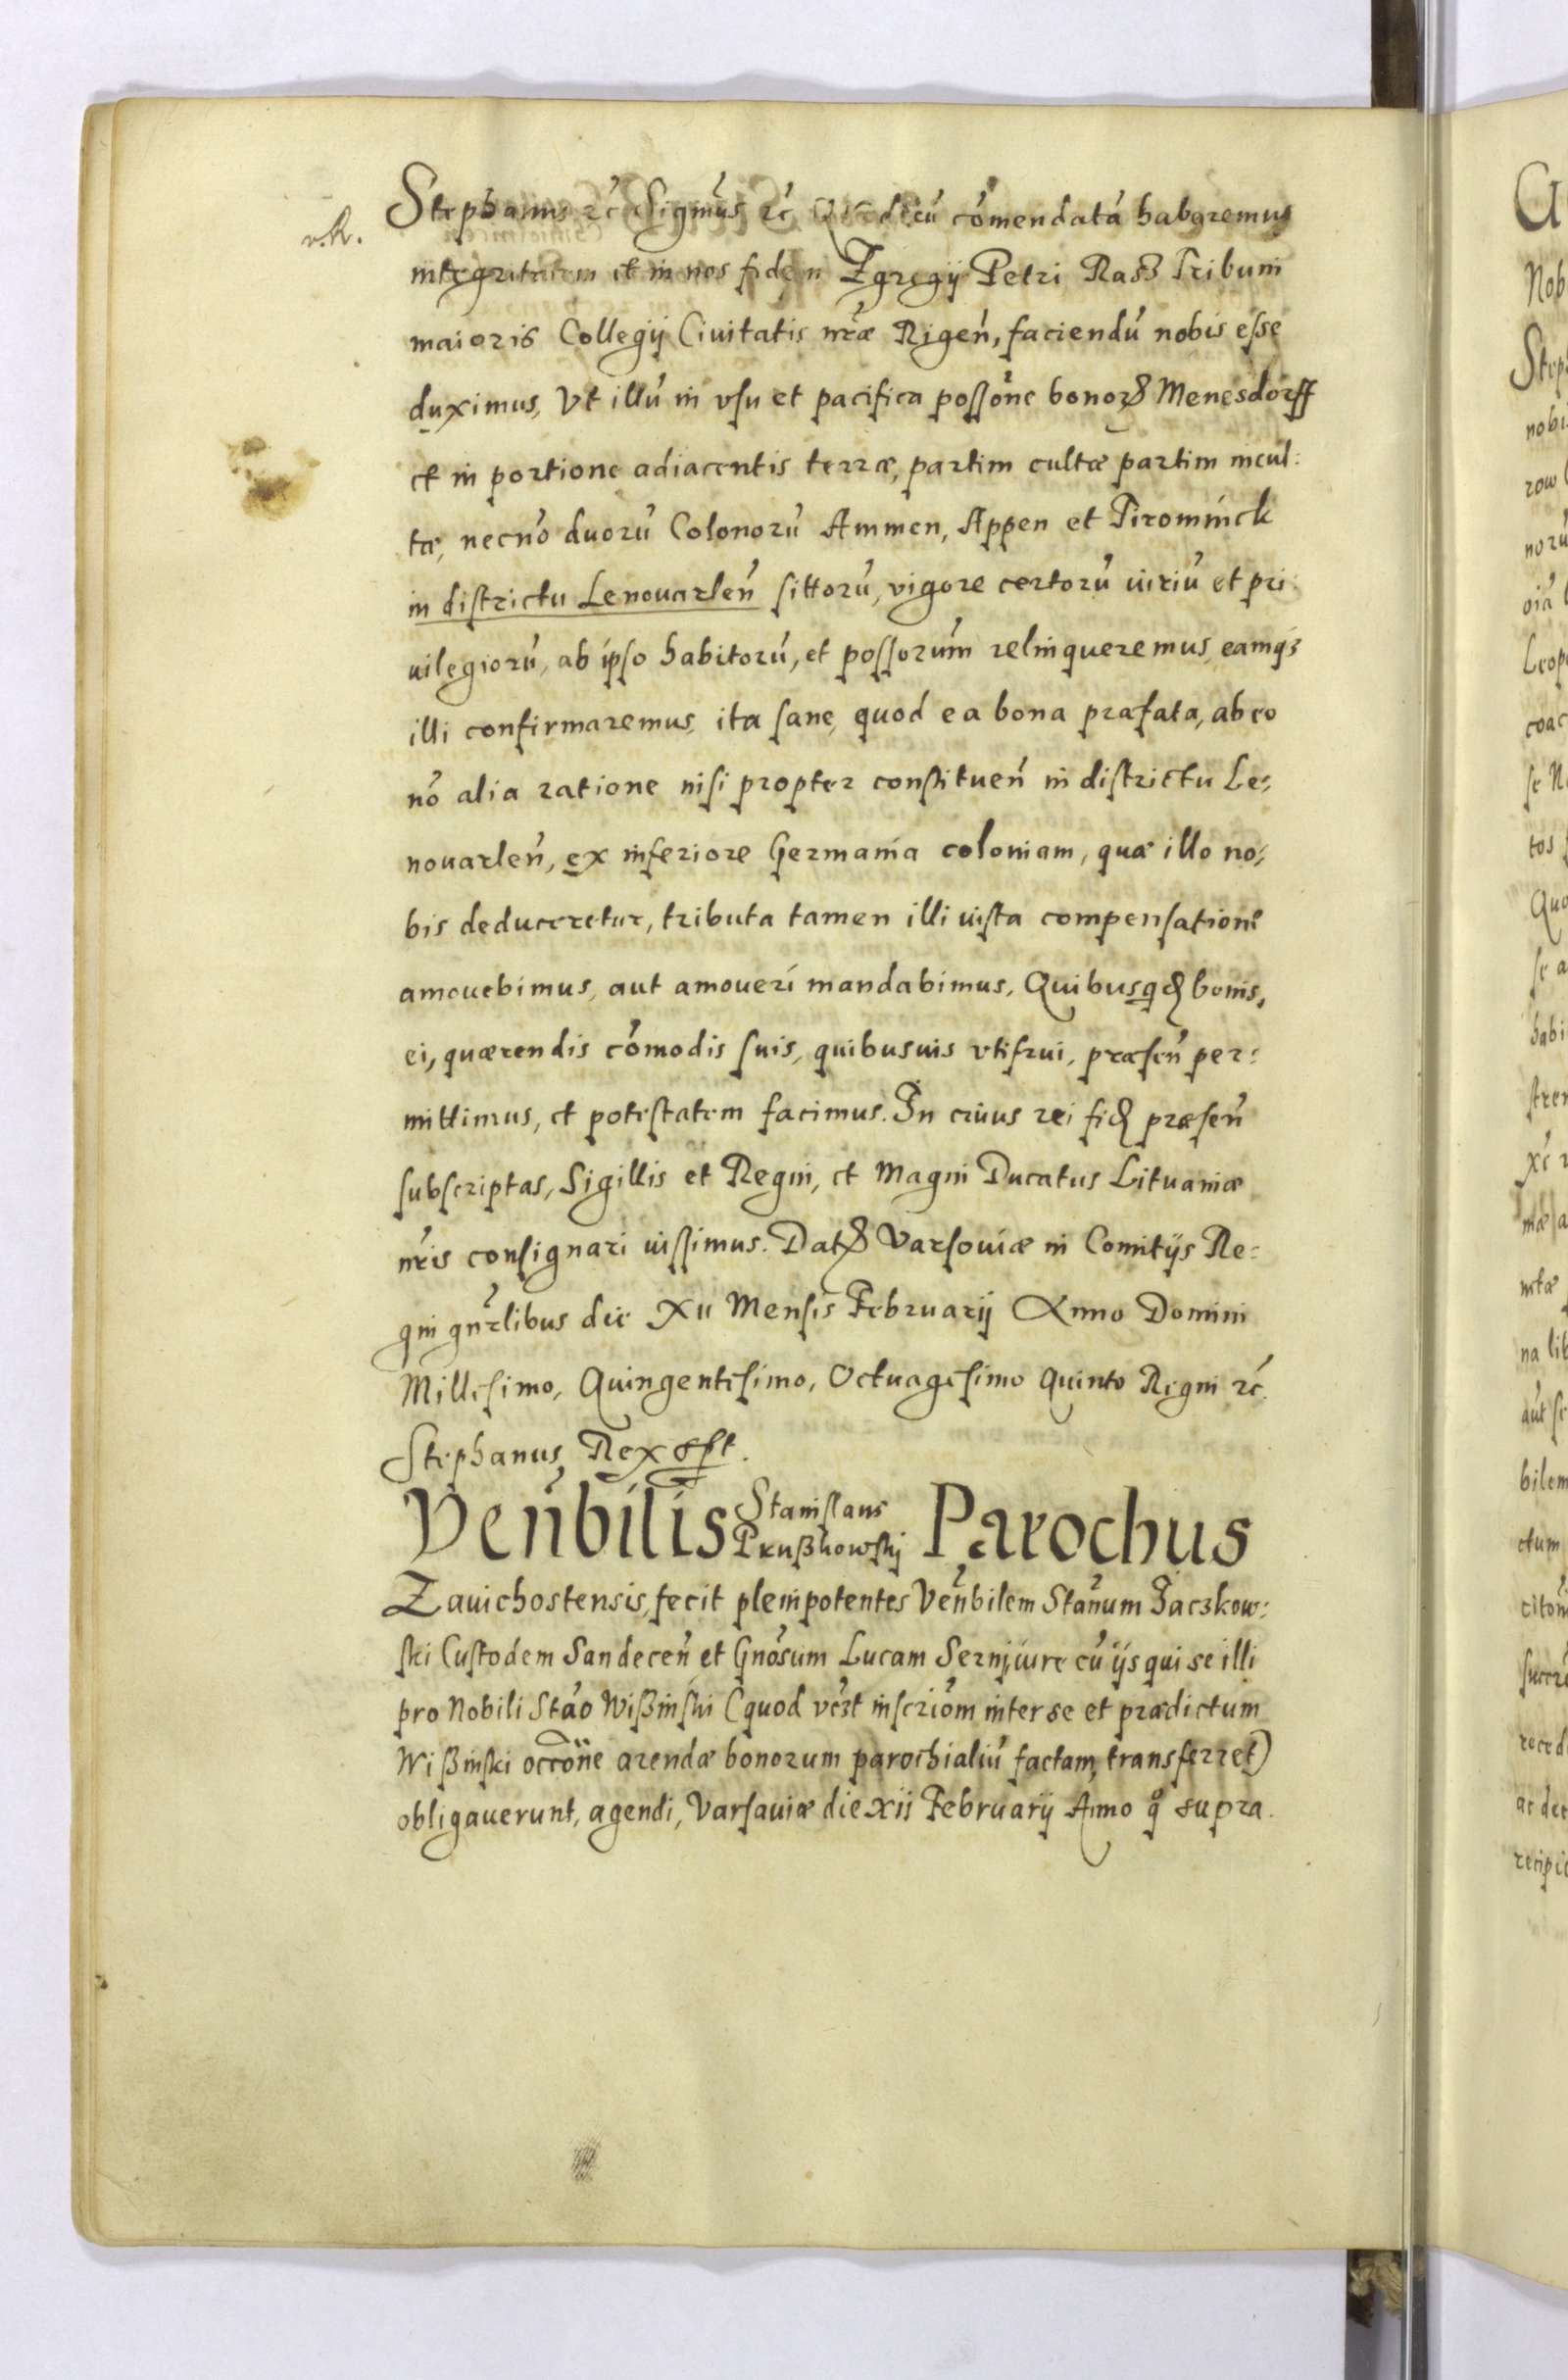 Stephanus ꝛc̃ Sigm̃us ꝛc̃ cũ cõmendatã haberemus
v.R.
integritatem et in nos fidem Egregij Petri Rasß Tribuni
maioris Collegij Ciuitatis nr̃æ Rigeñ, faciendũ nobis esse
duximus, Vt illũ in vsu et pacifica possõne bonorꝫ Menesdorff
et in portione adiacentis terræ, partim cultæ partim incul:
tæ, necnõ duorũ Colonorũ Ammen, Appen et Tirominck
in districtu Lenouarleñ sittorũ, vigore certorũ iuriũ et pri:
uilegiorũ, ab ipso habitorũ, et possorum̃ relinqueremus, eamqꝫ
illi confirmaremus, ita sane, quod ea bona præfata, ab eo
nõ alia ratione nisi propter constitueñ in districtu Le:
nouarleñ, ex inferiore Germania coloniam, quæ illo no:
bis deduceretur, tributa tamen illi iusta compensatione
amouebimus, aut amoueri mandabimus, Quibusqꝫ bonis,
ei, quærendis cõmodis suis, quibusuis vtifrui, præseñ per:
mittimus, et potestatem facimus. In cuius rei fiđ præseñ
subscriptas, Sigillis et Regni, et Magni Ducatus Lituaniæ
nr̃is consignari iussimus. Datꝫ Varsouiæ in Comitijs Re:
gni gñrlibus die XII Mensis Februarij Anno Domini
Millesimo, Quingentesimo, Octuagesimo Quinto Regni ꝛc̃.
Stephanus Rex sp̃t.
Veñbilis Stanislaus Prußkowskj Parochus
Zauichostensis, fecit plenipotentes Veñbilem Stañum Jaczkow:
ski Custodem Sandeceñ et Gñosum Lucam Sernj, iure cũ ijs qui se illi
pro Nobili Stãо Wißinski (quod vc̃zt inscriõm inter se et prædictum
Wißinski occõne arendæ bonorum parochialiũ factam, transferret)
obligauerunt, agendi, Varsauiæ die xii Februarij Anno qͦ supra.